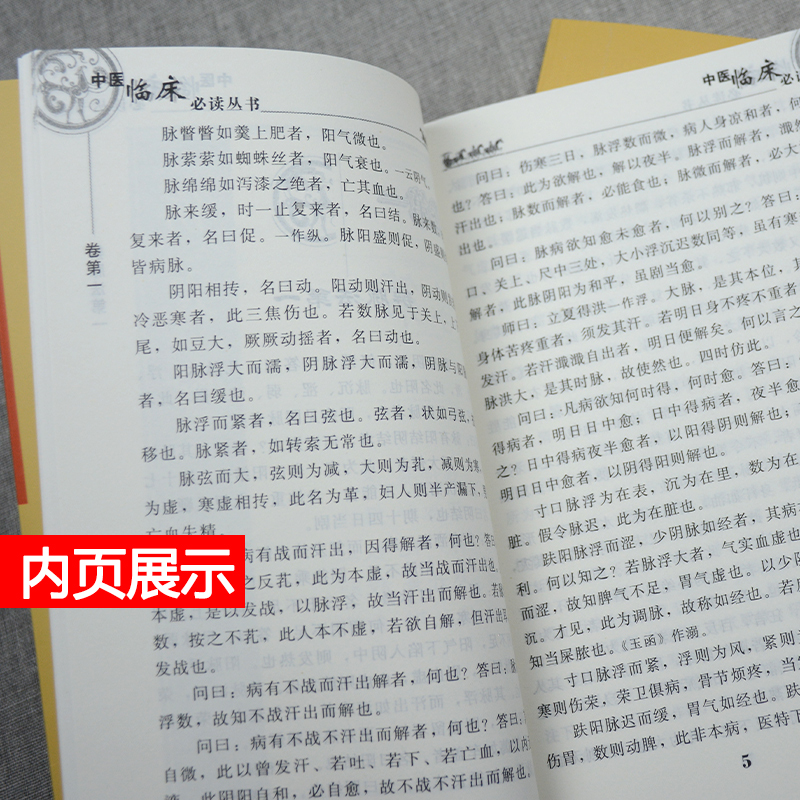 中医临床必读丛书
脉瞥瞥如羹上肥者，阳气微也。
脉萦萦如蜘蛛丝者，阳气衰也。一云阴气。
脉绵绵如泻漆之绝者，亡其血也。
脉来缓，时一止复来者，名曰结。脉来数，
复来者，名曰促。一作纵。脉阳盛则促，阴盛
皆病脉。
阴阳相抟，名曰动。阳动则汗出，阴动则
冷恶寒者，此三焦伤也。若数脉见于关上，上
尾，如豆大，厥厥动摇者，名曰动也。
阳脉浮大而濡，阴脉浮大而濡，阴脉与
者，名曰缓也。
脉浮而紧者，名曰弦也。弦者，状如弓弦，
移也。脉紧者，如转索无常也。
脉弦而大，弦则为减，大则为芤，减则为寒，
为虚，寒虚相抟，此名为革，妇人则半产漏下，
亡血失精。
病有战而汗出，因得解者，何也？答曰
之反芤，此为本虚，故当战而汗出也。
本虚，是以发战，以脉浮，故当汗出而解也。
数，按之不芤，此人本不虚，若欲自解，但汗出耳
发战也。
问曰：病有不战而汗出解者，何也？答曰：脉
浮数，故知不战汗出而解也。
问曰：病有不战不汗出而解者，何也？答曰：
自微，此以曾发汗、若吐、若下、若亡血，以内
此阴阳自和，必自愈，故不战不汗出而解也。
卷第一
内页展示
中医临床必读
问曰：伤寒三日，脉浮数而微，病人身凉和者，何
也？答曰：此为欲解也，解以夜半。脉浮而解者，濈然
汗出也；脉数而解者，必能食也；脉微而解者，必大
出也。
问曰：脉病欲知愈未愈者，何以别之？答曰：
口、关上、尺中三处，大小浮沉迟数同等，虽有寒
解者，此脉阴阳为和平，虽剧当愈。
师曰：立夏得洪一作浮。大脉，是其本位，其
身体苦疼重者，须发其汗。若明日身不疼不重者
发汗。若汗濈濈自出者，明日便解矣。何以言之
脉洪大，是其时脉，故使然也。四时仿此。
问曰：凡病欲知何时得，何时愈。答曰：
得病者，明日日中愈；日中得病者，夜半愈
之？日中得病夜半愈者，以阳得阴则解也；
明日日中愈者，以阴得阳则解也。
寸口脉浮为在表，沉为在里，数为在
脏。假令脉迟，此为在脏也。
趺阳脉浮而涩，少阴脉如经者，其病
利。何以知之？若脉浮大者，气实血虚也
而涩，故知脾气不足，胃气虚也。以少阴
沉。才见，此为调脉，故称如经也。若
知当屎脓也。《玉函》作溺。
寸口脉浮而紧，浮则为风，紧则
寒则伤荣，荣卫俱病，骨节烦疼，当
趺阳脉迟而缓，胃气如经也。趺
伤胃，数则动脾，此非本病，医特下
5